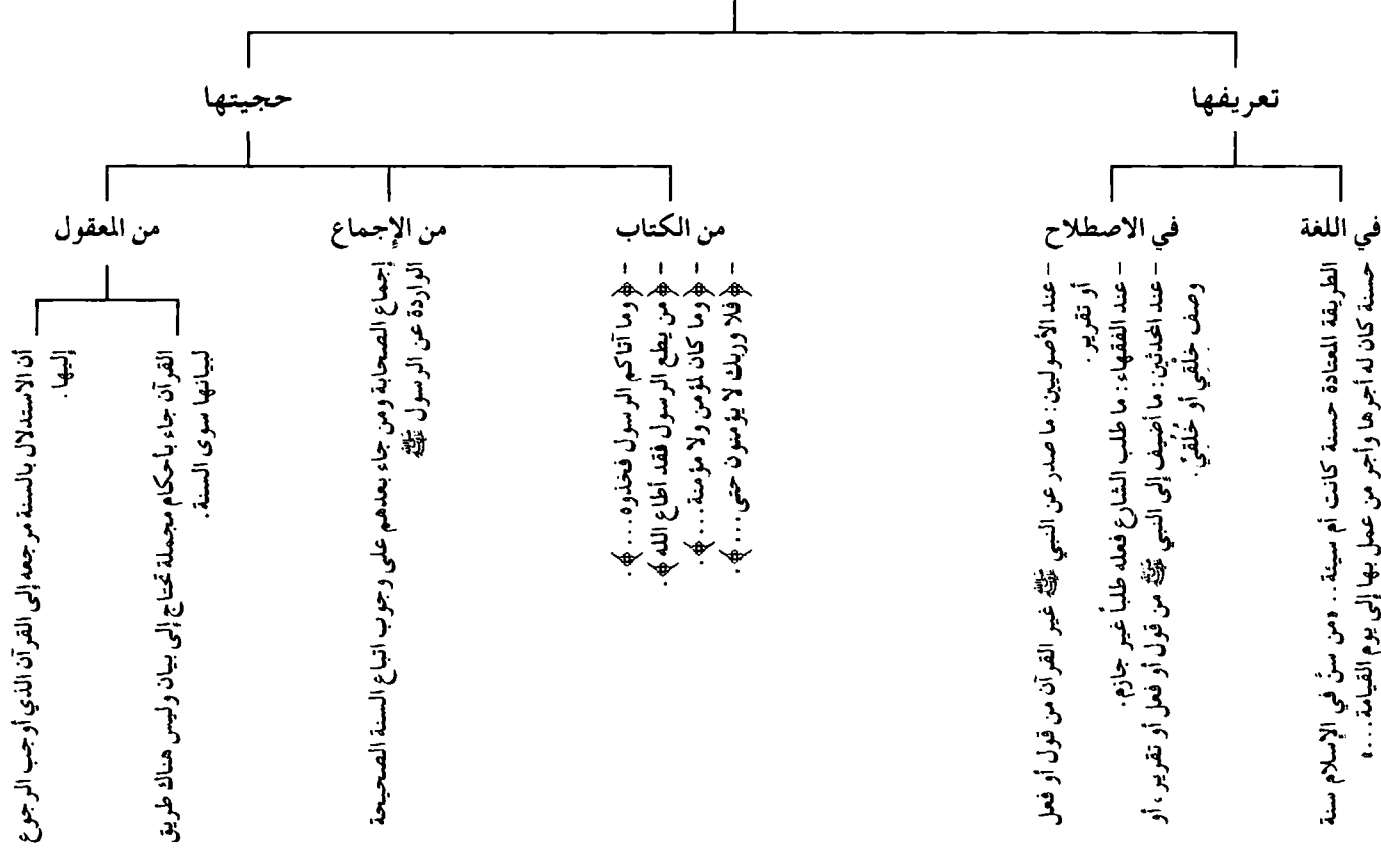 تعريفها
حجيتها
في اللغة
الطريقة المعتادة حسنة كانت أم سيئة.. «من سنَّ في الإسلام سنة
حسنة كان له أجرها وأجر من عمل بها إلى يوم القيامة...»
في الاصطلاح
- عند الأصوليين: ما صدر عن النبي ﷺ غير القرآن من قول أو فعل
أو تقرير.
- عند الفقهاء: ما طلب الشارع فعله طلباً غير جازم.
- عند المحدثين: ما أضيف إلى النبي ﷺ من قول أو فعل أو تقرير، أو
وصف خَلْقي أو خُلُقيّ.
من الكتاب
- ﴿فلا وربك لا يؤمنون حتى...﴾.
- ﴿وما كان لمؤمن ولا مؤمنة...﴾.
- ﴿من يطع الرسول فقد أطاع الله﴾.
- ﴿وما آتاكم الرسول فخذوه...﴾.
من الإجماع
إجماع الصحابة ومن جاء بعدهم على وجوب اتباع السنة الصحيحة
الواردة عن الرسول ﷺ
من المعقول
القرآن جاء بأحكام مجملة تحتاج إلى بيان وليس هناك طريق
لبيانها سوى السنة.
أن الاستدلال بالسنة مرجعه إلى القرآن الذي أوجب الرجوع
إليها.